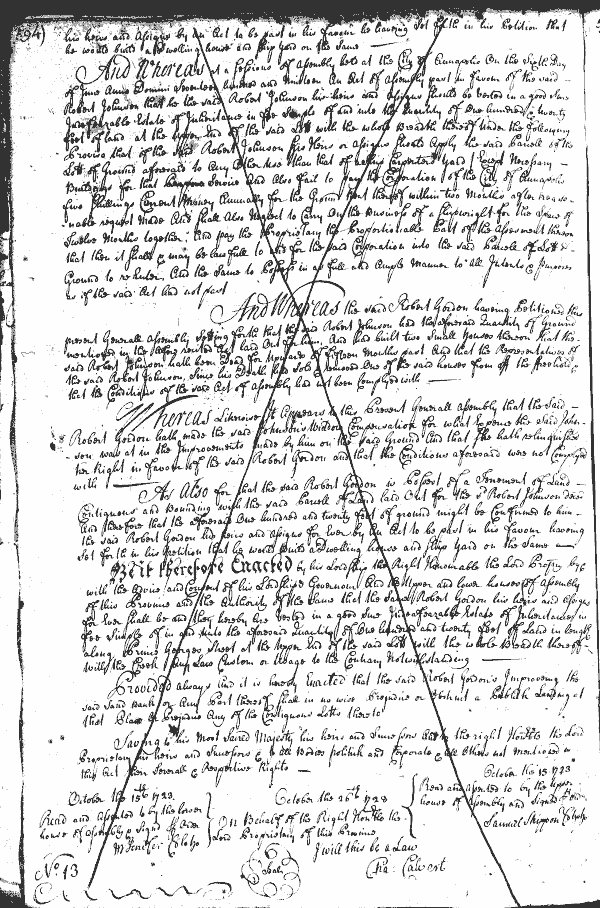 294)
his heirs and Assigns by an Act to be past in his favour he having Set forth in his Petition that
he would build a dwelling house and Ship Yard on the Same
And Whereas at a Sessions of Assembly held at the City of Annapolis On the Sixth Day
of June Anno Domini Seventeen hundred and nineteen An Act of Assembly past in favour of the said
Robert Johnson that he the said Robert Johnson his heirs and Assigns should be vested in a good Sure
Indefeazable Estate of Inheritance in Fee Simple of and into the Quantity of One hundred & twenty
feet of land at the upper End of the said Lott with the whole Breadth thereof Under the following
Proviso that if the said Robert Johnson his Heirs or Assigns should Apply the said parcell of the
Lott of Ground aforesaid to Any Other use than that of a Ship Carpenters Yard Except Necessary
Buildings for that Service And Also fail to pay the Corporation of the City of Annapolis
five Shillings Current Money Annually for the Ground Rent thereof within two Months after reaso-
nable request made And shall Also Neglect to Carry On the business of a Shipwright for the Space of
Twelve Months together; And pay the Proprietary the Proportionable Part of the Assessment thereon
that then it shall & may be lawfull to and for the said Corporation into the said parcell of Lott &
Ground to reenter And the Same to Possess in as full and Ample Manner to All Intents & Purposes
as if the said Act had not past
And Whereas the said Robert Gordon having Petitioned this
present Generall Assembly Setting forth that the said Robert Johnson had the aforesaid Quantity of Ground
mentioned in the Act laid Out for him, And had built two Small houses thereon that the
said Robert Johnson hath been Dead for upwards of fifteen Months past And that the Representatives of
the said Robert Johnson, Since his Death had Sold & removed One of the said houses from off the freehold &
that the Conditions of the said Act of Assembly had not been Complyed with
Whereas Likewise It Appears to this Present Generall Assembly that the Said
Robert Gordon hath made the said Johnsons Widdow Compensation for what Expence the said John-
son was at in the Improvements made by him on the said Ground And that She hath relinquished
her Right in favour of the said Robert Gordon and that the Conditions aforesaid were not Complyed
with
As Also for that the said Robert Gordon is Possest of a Tenement of Land
Contiguous and Bounding with the said parcell of Land laid Out for the Sd Robert Johnson
And therefore that the aforesaid One hundred and twenty feet of ground might be Confirmed to him
the said Robert Gordon his heirs and Assigns for ever by an Act to be past in his favour having
Set forth in his Petition that he would build a Dwelling house and Ship Yard on the Same
Be it therefore Enacted by his Lordship the Right Honourable the Lord Propry by &
with the advice and Consent of his Lordships Governour And the Upper and lower houses of Assembly
of this Province and the Authority of the Same that the said Robert Gordon his heirs and Assigns
for Ever Shall be and they hereby are Vested in a good Sure Indefeazable Estate of Inheritance in
Fee Simple of in and unto the aforesaid Quantity of One hundred and twenty feet of Land in length
along Prince Georges Street at the Upper End of the said Lott with the whole Breadth thereof
With the Creek Any Law Custom or Usage to the Contrary Notwithstanding
Provided always And it is hereby Enacted that the said Robert Gordon's Improving the
said Sand Bank or Any Part thereof Shall in no wise Prejudice or Obstruct a Publick Landing at
that Place or Prejudice Any of the Contiguous Lotts thereto
Saving to his most Sacred Majesty his heirs and Successors And to the right Honble the Lord
Proprietary his heirs and Successors & to all Bodies politick and Corporate & all Others not mentioned in
this Act their Severall & Respective Rights
October the 15th 1723
Read and assented to by the lower
house of Assembly & Signd Order
M Jenifer Cl lo ho
October the 26th 1723
On Behalf of the Right Honble the
Lord Proprietary of this Province
I will this be a Law
Cha: Calvert
October the 15 1723
Read and assented to by the upper
house of Assembly and Signd Order
Samuel Skippon
Seal
No. 13